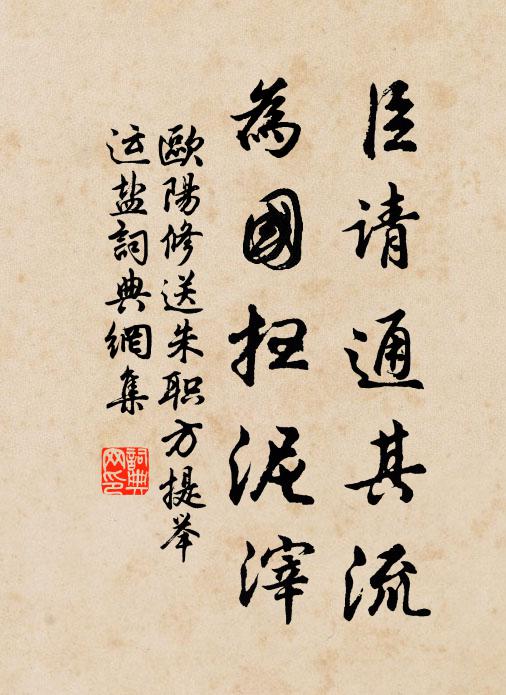 臣请通其流
為國扫泥滓
歐陽修送朱职方提举
运盐詞典網集
詞典网印